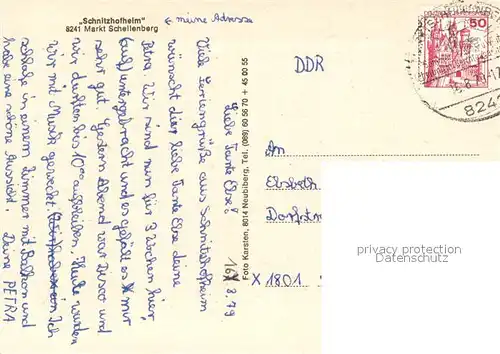 „Schnitzhofheim"
8241 Markt Schellenberg
← meine Adresse
16. 8. 79
Liebe Tante Else!
Viele Feriengrüße aus Schnitzhofheim
wünscht dir liebe Tante Else deine
Petra. Wir sind nun für 3 Wochen hier
untergebracht und es gefällt es mir
sehr gut. Gestern Abend war Disco und
wir durften bis 10 00 aufbleiben. Heute wurden
wir mit Musik geweckt. Ich
schlafe in einem Zimmer mit Balkon und
habe eine schöne Aussicht. Deine PETRA
Foto Karsten, 8014 Neubiberg, Tel. (089) 60 56 70 + 45 00 55
DDR
An
Elsbeth
Dorfstr
X 1801
50
824
privacy protection
Datenschutz